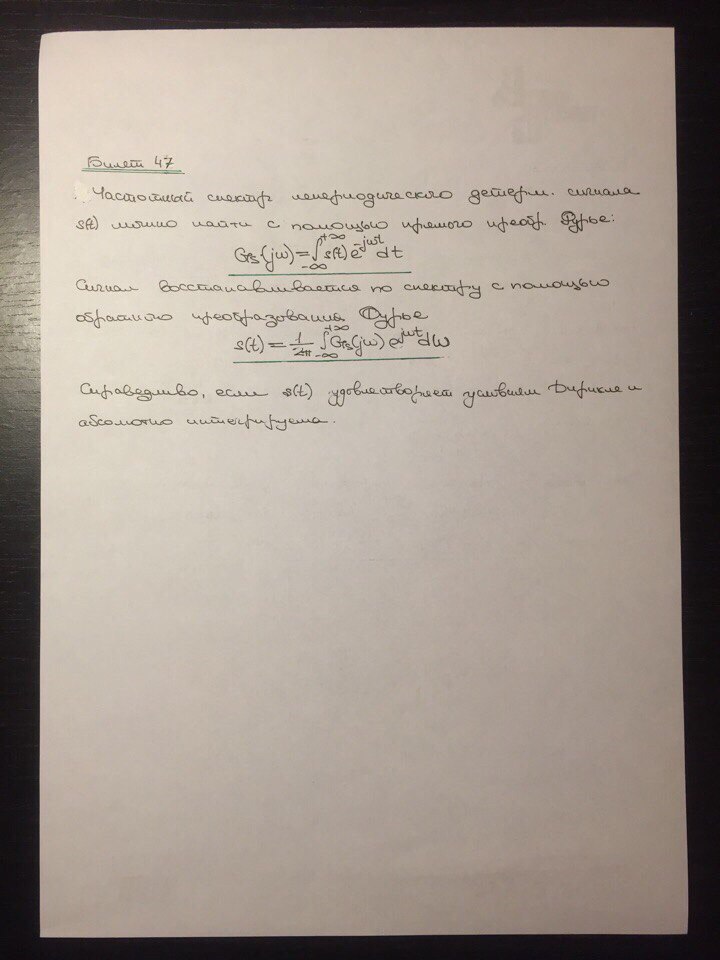 Билет 47
Частотный спектр непериодического детерм. сигнала
s(t) можно найти с помощью прямого преобр. Фурье:
Gs(jω) = ∫_{-∞}^{+∞} s(t) e^{-jωt} dt
Сигнал восстанавливается по спектру с помощью
обратного преобразования Фурье
s(t) = 1/2π ∫_{-∞}^{+∞} Gs(jω) e^{jωt} dω
Справедливо, если s(t) удовлетворяет условиям Дирихле и
абсолютно интегрируема.